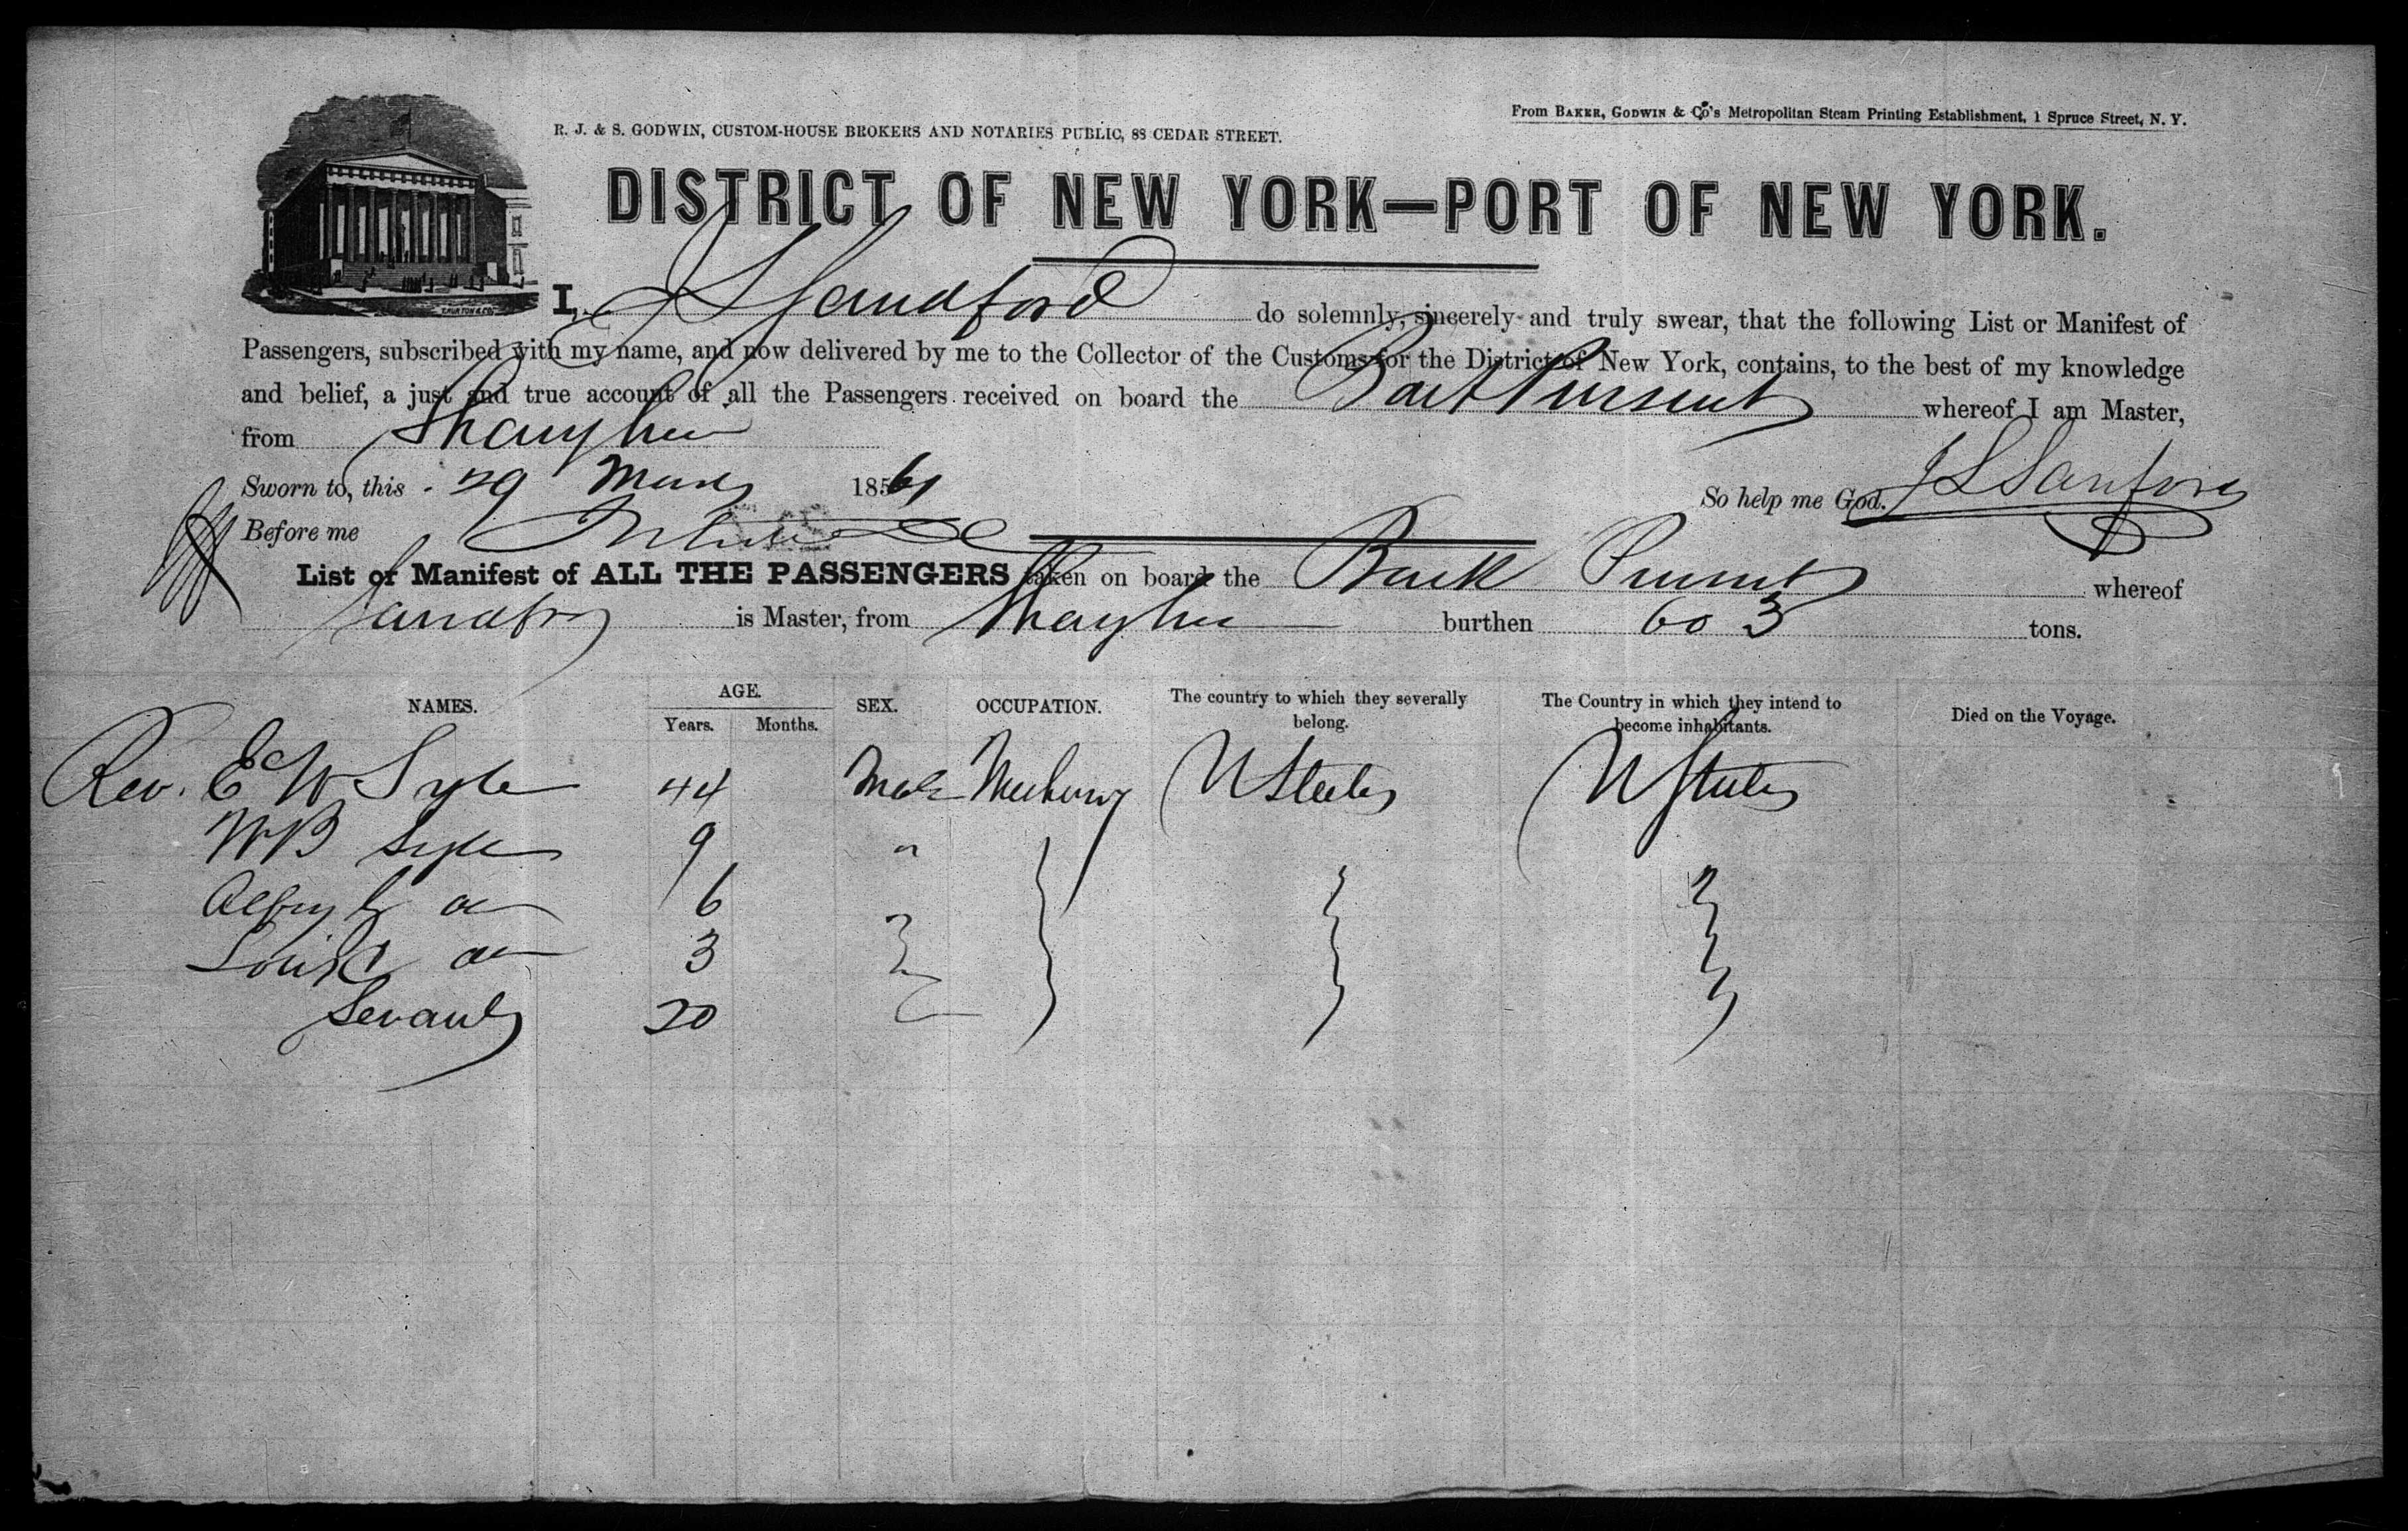 From BAKER, GODWIN & Co's Metropolitan Steam Printing Establishment, 1 Spruce Street, N. Y.
R. J. & S. GODWIN, CUSTOM-HOUSE BROKERS AND NOTARIES PUBLIC, 88 CEDAR STREET.
DISTRICT OF NEW YORK—PORT OF NEW YORK.
I, J L Sandford do solemnly, sincerely and truly swear, that the following List or Manifest of
Passengers, subscribed with my name, and now delivered by me to the Collector of the Customs for the District of New York, contains, to the best of my knowledge
and belief, a just and true account of all the Passengers received on board the Bark Pursuit whereof I am Master,
from Shanghae
Sworn to, this 29 1861 So help me God. J L Sanford
Before me
List or Manifest of ALL THE PASSENGERS taken on board the Bark Pursuit whereof
Sandford is Master, from Shanghae burthen 603 tons.
NAMES. AGE. Years. Months. SEX. OCCUPATION. The country to which they severally belong. The Country in which they intend to become inhabitants. Died on the Voyage.
Rev. E W Syle 44 Male Missionary U States U States
W B Syle 9 "
do 6
Louisa do 3
Servant 20